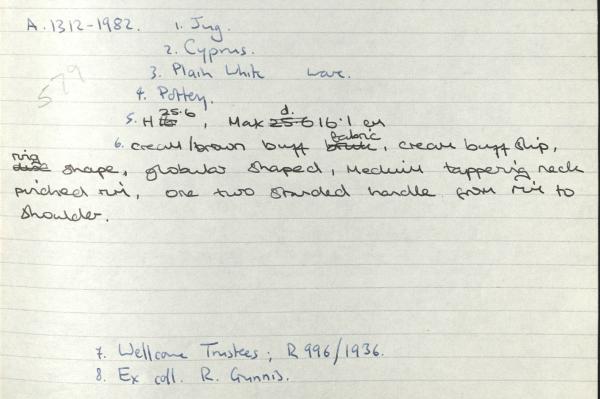 A.1312-1982. 1. Jug.
2. Cyprus.
3. Plain White ware.
579
4. Pottery.
5. H 25.6, Max d. 16.1 cm
6. cream/brown buff fabric, cream buff slip,
shape, globular shaped, medium tappering neck
pinched rim, one two stranded handle from rim to
shoulder.
7. Wellcome Trustees; R 996/1936.
8. Ex coll. R. Gunnis.